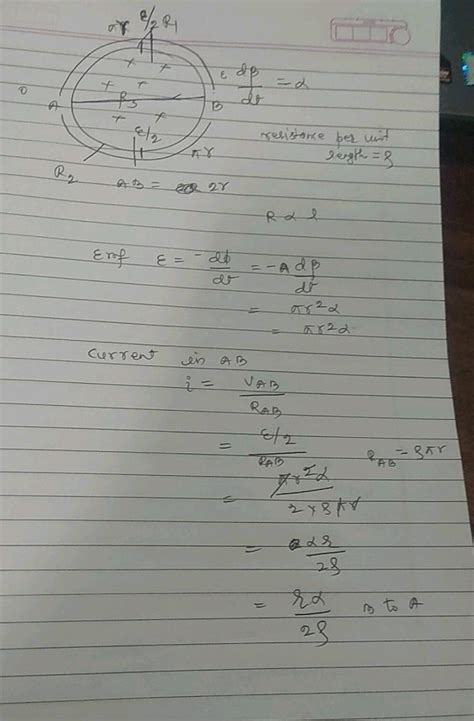 πr ε/2 R1
A R3 B
ε/2
R2 πr
AB = 2r
dB/dt = α
resistance per unit
length = ρ
R α l
Emf ε = -dφ/dt = -A dB/dt
= πr²α
= πr²α
current in AB
i = VAB/RAB
= ε/2 / RAB RAB = ρπr
= πr²α / 2 × ρπr
= αr/2ρ
= rα/2ρ B to A